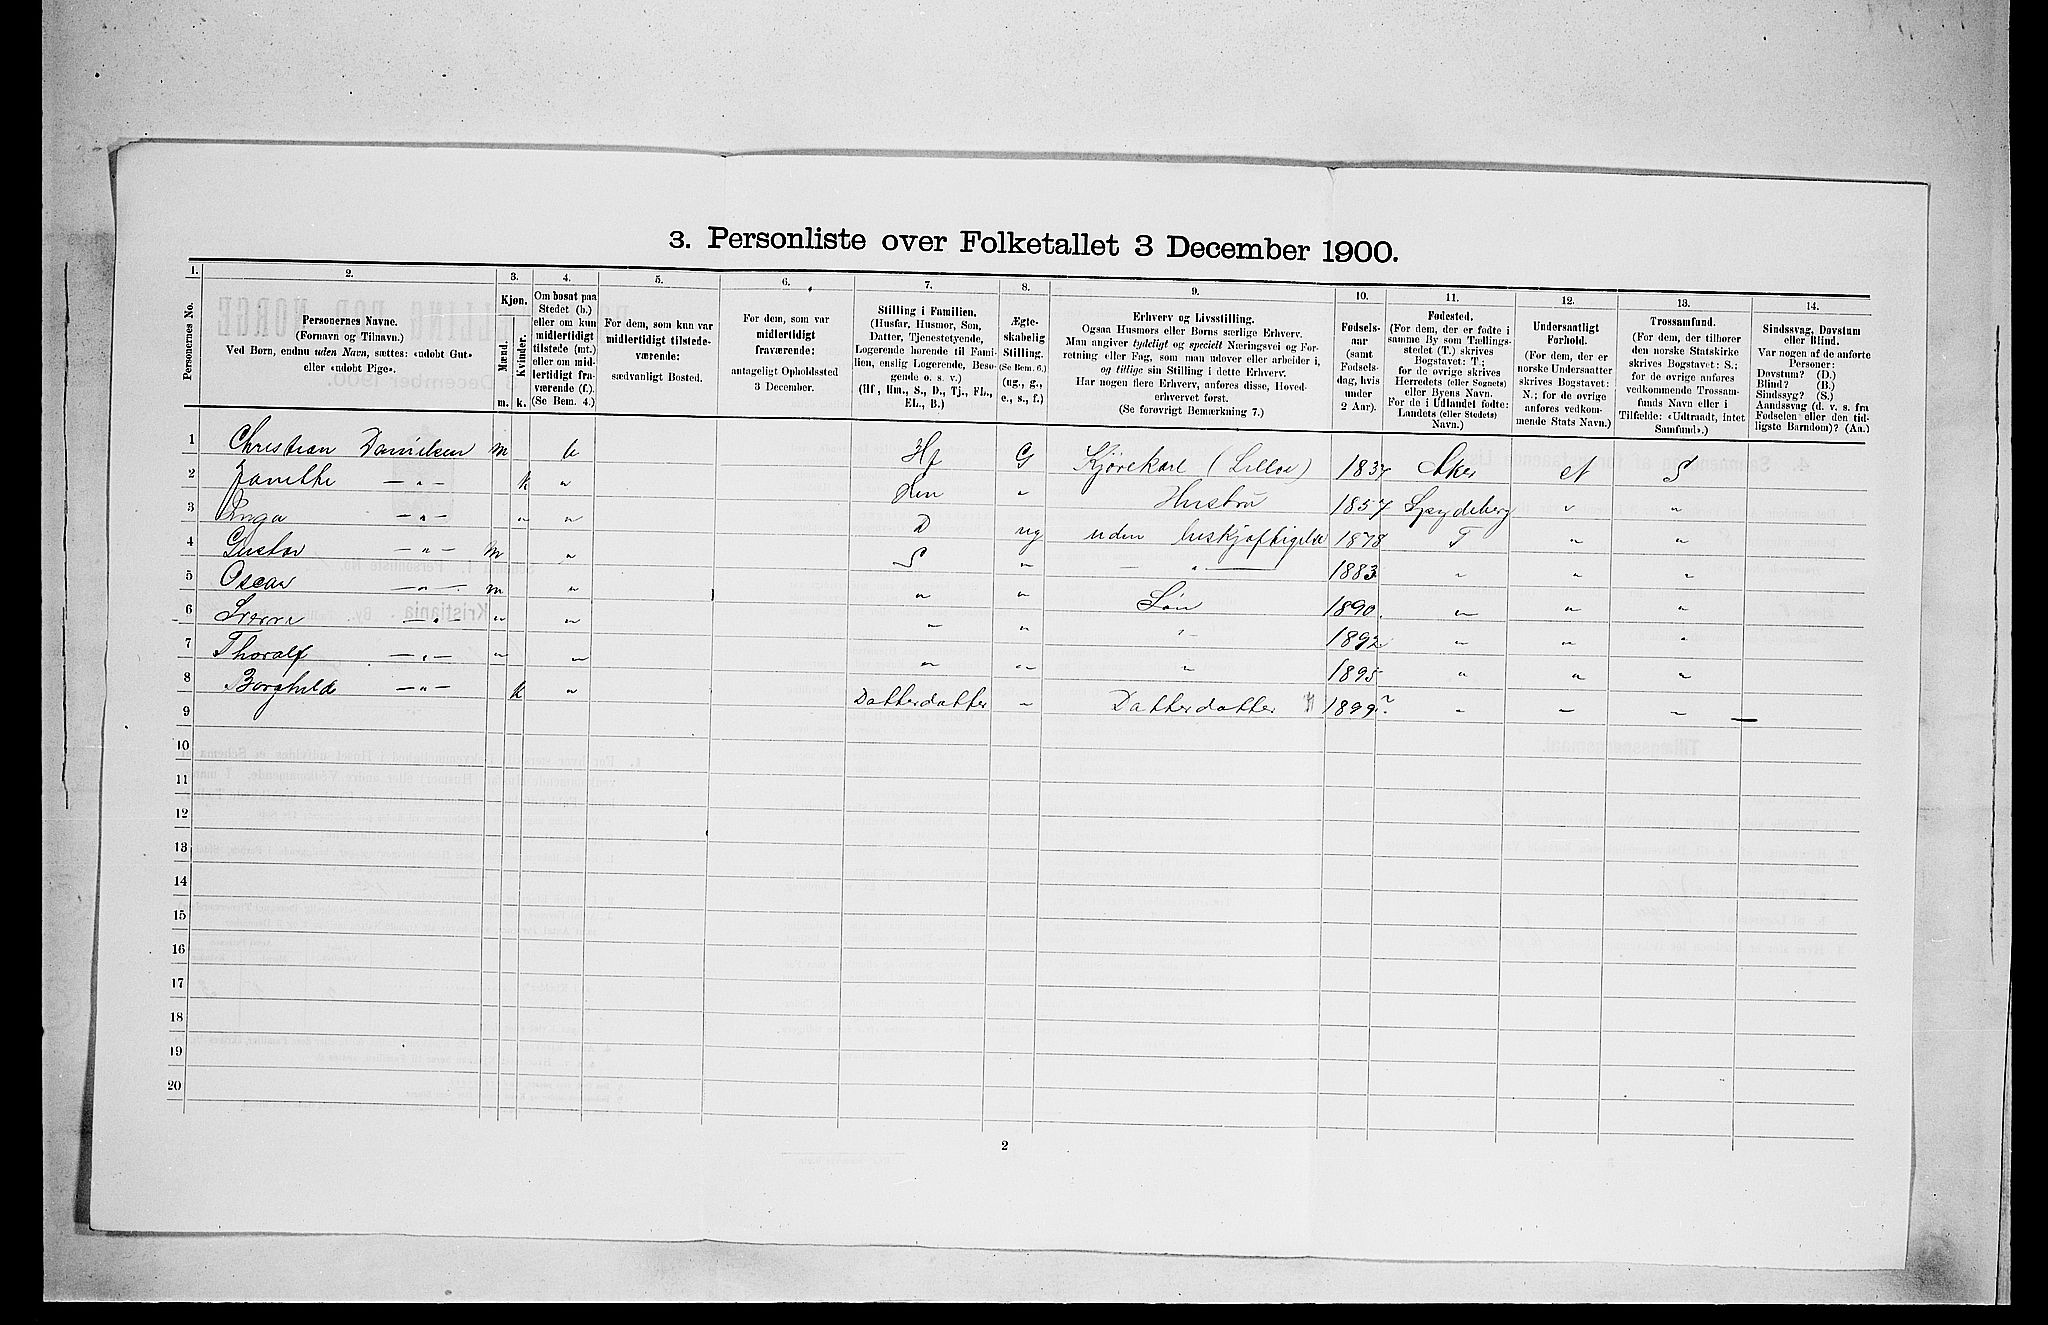 3. Personliste over Folketallet 3 December 1900.
1. 2. 3. 4. 5. 6. 7. 8. 9. 10. 11. 12. 13. 14.
Personernes No.
Personernes Navne.
(Fornavn og Tilnavn.)
Ved Børn, endnu uden Navn, sættes: «udøbt Gut»
eller «udøbt Pige».
Kjøn.
Mænd.
Kvinder.
m. k.
Om bosat paa
Stedet (b.)
eller om kun
midlertidigt
tilstede (mt.)
eller om mid-
lertidigt fra-
værende (f.).
(Se Bem. 4.)
For dem, som kun var
midlertidigt tilstede-
værende:
sædvanligt Bosted.
For dem, som var
midlertidigt
fraværende:
antageligt Opholdssted
3 December.
Stilling i Familien.
(Husfar, Husmor, Søn,
Datter, Tjenestetyende,
Logerende hørende til Fami-
lien, enslig Logerende, Besø-
gende o. s. v.)
(Hf., Hm., S., D., Tj., FL.,
EL., B.)
Ægte-
skabelig
Stilling.
(Se Bem. 6.)
(ug., g.,
e., s., f.)
Erhverv og Livsstilling.
Ogsaa Husmors eller Børns særlige Erhverv.
Man angiver tydeligt og specielt Næringsvei og For-
retning eller Fag, som man udøver eller arbeider i,
og tillige sin Stilling i dette Erhverv.
Har nogen flere Erhverv, anføres disse, Hoved-
erhvervet først.
(Se forøvrigt Bemærkning 7.)
Fødsels-
aar
(samt
Fødsels-
dag, hvis
under
2 Aar).
Fødested.
(For dem, der er fødte i
samme By som Tællings-
stedet (T.) skrives
Bogstavet: T.;
for de øvrige skrives
Herredets (eller Sognets)
eller Byens Navn.
For de i Udlandet fødte:
Landets (eller Stedets)
Navn.)
Undersaatligt
Forhold.
(For dem, der er
norske Undersaatter
skrives Bogstavet:
N.; for de øvrige
anføres vedkom-
mende Stats Navn.)
Trossamfund.
(For dem, der tilhører
den norske Statskirke
skrives Bogstavet: S.;
for de øvrige anføres
vedkommende Trossam-
funds Navn eller i
Tilfælde: «Udtraadt, intet
Samfund».)
Sindssvag, Døvstum
eller Blind.
Var nogen af de anførte
Personer:
Døvstum? (D.)
Blind? (B.)
Sindssyg? (S.)
Aandssvag (d. v. s. fra
Fødselen eller den tid-
ligste Barndom)? (Aa.)
1 Christian Danielsen m b Hf G Kjørekarl (Lilloe) 1837 Aker N S
2 Janethe — " — k " Hm " Hustru 1857 Spydeberg " "
3 Inga — " — " " D ug uden beskjæftigelse 1878 T " "
4 Gustav — " — m " S " — " — 1883 " " "
5 Oscar — " — m " " " Søn 1890. " " "
6 Sverre — " — " " " " " 1892 " " "
7 Thoralf — " — " " " " " 1895 " " "
8 Borghild — " — k " Datterdatter " Datterdatter 1899? " " "
9
10
11
12
13
14
15
16
17
18
19
20
2